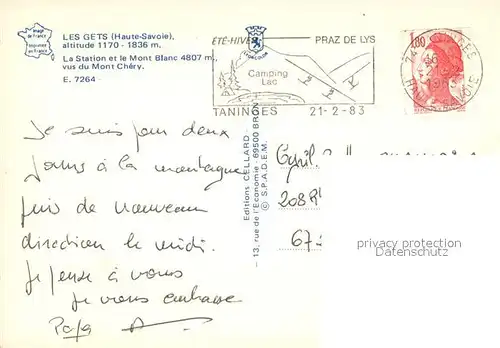 Image
de France
LES GETS (Haute-Savoie),
altitude 1170 - 1836 m.
La Station et le Mont Blanc 4807 m.,
vus du Mont Chéry.
E. 7264
ÉTÉ-HIVER
PRAZ DE LYS
Camping
Lac
TANINGES
21-2-83
1,80
74 TANINGES
HAUTE-SAVOIE
Je suis pour deux
jours à la montagne
puis de nouveau
direction le midi.
Je pense à vous
Je vous embrasse
Papa
Editions CELLARD
13, rue de l'Economie - 69500 BRON
© S.P.A.D.E.M.
Cyril
208 R
67
privacy protection
ansichtskarten-center.de